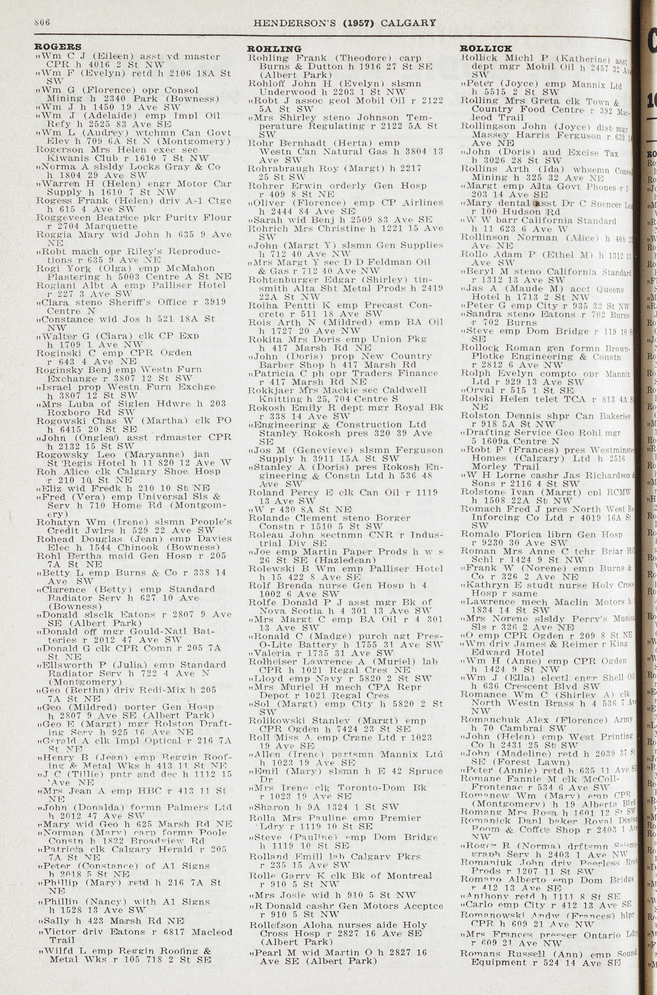 806
HENDERSON'S (1957) CALGARY
ROGERS
„Wm C J (Eileen) asst yd master
CPR h 4016 2 St NW
„Wm F (Evelyn) retd h 2106 18A St
SW
„Wm G (Florence) opr Consol
Mining h 2340 Park (Bowness)
„Wm J h 1450 19 Ave SW
„Wm J (Adelaide) emp Impl Oil
Refy h 2525 83 Ave SE
„Wm L (Audrey) wtchmn Can Govt
Elev h 709 6A St N (Montgomery)
Rogerson Mrs Helen exec sec
Kiwanis Club r 1610 7 St NW
„Norma A slsldy Locks Gray & Co
h 1804 29 Ave SW
„Warren H (Helen) engr Motor Car
Supply h 1610 7 St NW
Rogess Frank (Helen) driv A-1 Ctge
h 615 4 Ave SW
Roggeveen Beatrice pkr Purity Flour
r 2704 Marquette
Roggia Mary wid John h 635 9 Ave
NE
„Robt mach opr Riley's Reproduc-
tions r 635 9 Ave NE
Rogi York (Olga) emp McMahon
Plastering h 5003 Centre A St NE
Rogiani Albt A emp Palliser Hotel
r 227 3 Ave SW
„Clara steno Sheriff's Office r 3919
Centre N
„Constance wid Jos h 521 18A St
NW
„Walter G (Clara) clk CP Exp
h 1709 1 Ave NW
Roginski C emp CPR Ogden
r 643 4 Ave NE
Roginsky Benj emp Westn Furn
Exchange r 3807 12 St SW
„Israel prop Westn Furn Exchge
h 3807 12 St SW
„Mrs Luba of Siglen Hdwre h 203
Roxboro Rd SW
Rogowski Chas W (Martha) clk PO
h 6415 20 St SE
„John (Onglea) asst rdmaster CPR
h 2132 15 St SW
Rogowsky Leo (Maryanne) jan
St Regis Hotel h 11 820 12 Ave W
Roh Alice clk Calgary Shoe Hosp
r 210 10 St NE
„Eliz wid Fredk h 210 10 St NE
„Fred (Vera) emp Universal Sls &
Serv h 710 Home Rd (Montgom-
ery)
Rohatyn Wm (Irene) slsmn People's
Credit Jwlrs h 529 22 Ave SW
Rohead Douglas (Jean) emp Davies
Elec h 1544 Chinook (Bowness)
Rohl Bertha maid Gen Hosp r 205
7A St NE
„Betty L emp Burns & Co r 338 14
Ave SW
„Clarence (Betty) emp Standard
Radiator Serv h 627 10 Ave
(Bowness)
„Donald slsclk Eatons r 2807 9 Ave
SE (Albert Park)
„Donald off mgr Gould-Natl Bat-
teries r 2012 47 Ave SW
„Donald G clk CPR Comn r 205 7A
St NE
„Ellsworth P (Julia) emp Standard
Radiator Serv h 722 4 Ave N
(Montgomery)
„Geo (Bertha) driv Redi-Mix h 205
7A St NE
„Geo (Mildred) porter Gen Hosp
h 2807 9 Ave SE (Albert Park)
„Geo E (Margt) mgr Rolston Draft-
ing Serv h 925 16 Ave NW
„Gerald A clk Impl Optical r 216 7A
St NE
„Henry B (Jean) emp Reggin Roof-
ing & Metal Wks h 413 11 St NE
„J C (Tillie) pntr and dec h 1112 15
Ave NE
„Mrs Jean A emp HBC r 413 11 St
NE
„John (Donalda) formn Palmers Ltd
h 2012 47 Ave SW
„Mary wid Geo h 625 Marsh Rd NE
„Norman (Mary) carp formn Poole
Constn h 1822 Broadview Rd
„Patricia clk Calgary Herald r 205
7A St NE
„Peter (Constance) of A1 Signs
h 2018 5 St NE
„Phillip (Mary) retd h 216 7A St
NE
„Phillip (Nancy) with A1 Signs
h 1528 13 Ave SW
„Sally h 423 Marsh Rd NE
„Victor driv Eatons r 6817 Macleod
Trail
„Wilfd L emp Reggin Roofing &
Metal Wks r 105 718 2 St SE
ROHLING
Rohling Frank (Theodore) carp
Burns & Dutton h 1916 27 St SE
(Albert Park)
Rohloff John H (Evelyn) slsmn
Underwood h 2203 1 St NW
„Robt J assoc geol Mobil Oil r 2122
5A St SW
„Mrs Shirley steno Johnson Tem-
perature Regulating r 2122 5A St
SW
Rohr Bernhadt (Herta) emp
Westn Can Natural Gas h 3804 13
Ave SW
Rohrabraugh Roy (Margt) h 2217
25 St SW
Rohrer Erwin orderly Gen Hosp
r 409 8 St NE
„Oliver (Florence) emp CP Airlines
h 2444 84 Ave SE
„Sarah wid Benj h 2509 83 Ave SE
Rohrich Mrs Christine h 1221 15 Ave
SW
„John (Margt Y) slsmn Gen Supplies
h 712 40 Ave NW
„Mrs Margt Y sec D D Feldman Oil
& Gas r 712 40 Ave NW
Rohtenburger Edgar (Shirley) tin-
smith Alta Sht Metal Prods h 2419
22A St NW
Roiha Pentti K emp Precast Con-
crete r 511 18 Ave SW
Rois Arth N (Mildred) emp BA Oil
h 1727 20 Ave NW
Rokita Mrs Doris emp Union Pkg
h 417 Marsh Rd NE
„John (Doris) prop New Country
Barber Shop h 417 Marsh Rd
„Patricia C ph opr Traders Finance
r 417 Marsh Rd NE
Rokkjaer Mrs Mackie sec Caldwell
Knitting h 25, 704 Centre S
Rokosh Emily R dept mgr Royal Bk
r 338 14 Ave SW
„Engineering & Construction Ltd
Stanley Rokosh pres 320 39 Ave
SE
„Jos M (Genevieve) slsmn Ferguson
Supply h 3911 15A St SW
„Stanley A (Doris) pres Rokosh En-
gineering & Constn Ltd h 536 48
Ave SW
Roland Percy E clk Can Oil r 1119
13 Ave SW
„W r 430 8A St NE
Rolande Clement steno Borger
Constn r 1510 5 St SW
Roleau John sectnmn CNR r Indus-
trial Div SE
„Joe emp Martin Paper Prods h w s
26 St SE (Hazledean)
Rolewski B Wm emp Palliser Hotel
h 15 422 8 Ave SE
Rolf Brenda nurse Gen Hosp h 4
1002 6 Ave SW
Rolfe Donald P J asst mgr Bk of
Nova Scotia h 4 301 13 Ave SW
„Mrs Margt C emp BA Oil r 4 301
13 Ave SW
„Ronald C (Madge) purch agt Pres-
O-Lite Battery h 1755 31 Ave SW
„Valeria r 1735 31 Ave SW
Rolheiser Lawrence A (Muriel) lab
CPR h 1021 Regal Cres NE
„Lloyd emp Navy r 5820 2 St SW
„Mrs Muriel H mech CPA Repr
Depot r 1021 Regal Cres
„Sol (Margt) emp City h 5820 2 St
SW
Rolikowski Stanley (Margt) emp
CPR Ogden h 7424 23 St SE
Roll Miss A emp Crane Ltd r 1023
19 Ave SE
„Allen (Irene) partsmn Mannix Ltd
h 1023 19 Ave SE
„Emil (Mary) slsmn h E 42 Spruce
Dr
„Mrs Irene clk Toronto-Dom Bk
r 1023 19 Ave SE
„Sharon h 9A 1324 1 St SW
Rolla Mrs Pauline emp Premier
Ldry r 1119 10 St SE
„Steve (Pauline) emp Dom Bridge
h 1119 10 St SE
Rolland Emill lab Calgary Pkrs
r 235 15 Ave SW
Rolle Garry K clk Bk of Montreal
r 910 5 St NW
„Mrs Josie wid h 910 5 St NW
„R Donald cashr Gen Motors Accptce
r 910 5 St NW
Rollefson Aloha nurses aide Holy
Cross Hosp r 2827 16 Ave SE
(Albert Park)
„Pearl M wid Martin O h 2827 16
Ave SE (Albert Park)
ROLLICK
Rollick Michl P (Katherine) asst
dept mgr Mobil Oil h 2457 32 Ave
SW
„Peter (Joyce) emp Mannix Ltd
h 5515 2 St SW
Rolling Mrs Greta clk Town &
Country Food Centre r 392 Mac-
leod Trail
Rollingson John (Joyce) dist mgr
Massey Harris Ferguson r 639
Ave NE
„John (Doris) aud Excise Tax
h 3026 28 St SW
Rollins Arth (Ida) whsemn Consol
Mining h 325 32 Ave NE
„Margt emp Alta Govt Phones r 1
203 14 Ave SE
„Mary dental asst Dr C Spencer
r 100 Hudson Rd
„W W barr California Standard
h 11 623 6 Ave W
Rollinson Norman (Alice) h 408
Ave NE
Rollo Adam P (Ethel M) h 1312 13
Ave SW
„Beryl M steno California Standard
r 1312 13 Ave SW
„Jas A (Maude M) acct Queens
Hotel h 1713 2 St NW
„Peter G emp City r 935 32 St NW
„Sandra steno Eatons r 702 Burns
r 702 Burns
„Steve emp Dom Bridge r 119 10
SE
Rollock Roman gen formn Brown-
Plotke Engineering & Constn
r 2812 6 Ave NW
Rolph Evelyn compto opr Mannix
Ltd r 929 13 Ave SW
„Orval r 515 1 St SE
Rolski Helen telet TCA r 813 4A S
NE
Rolston Dennis shpr Can Bakeries
r 918 5A St NW
„Drafting Service Geo Rohl mgr
5 1609a Centre N
„Robt F (Frances) pres Westminster
Homes (Calgary) Ltd h 2516
Morley Trail
„W H Lorne cashr Jas Richardson &
Sons r 2116 4 St SW
Rolstone Ivan (Margt) cpl RCMP
h 1508 22A St NW
Romach Fred J pres North West Re-
Inforcing Co Ltd r 4019 16A St
SW
Romalo Florica libm Gen Hosp
r 9230 30 Ave SW
Roman Mrs Anne C tchr Briar Hill
Schl r 1424 9 St NW
„Frank W (Norene) emp Burns &
Co r 326 2 Ave NE
„Kathryn E studt nurse Holy Cross
Hosp r same
„Lawrence mech Maclin Motors h
1834 14 St SW
„Mrs Norene slsldy Perry's Music
Sls r 326 2 Ave NE
„O emp CPR Ogden r 209 8 St NE
„Wm driv James & Reimer r King
Edward Hotel
„Wm H (Anne) emp CPR Ogden
h 1424 9 St NW
„Wm J (Ella) electl engr Shell Oil
h 636 Crescent Blvd SW
Romance Wm C (Shirley A) clk
North Westn Brass h 4 536 7 Ave
NW
Romanchuk Alex (Florence) Army
h 70 Cambrai SW
„John (Helen) emp West Printing
Co h 2431 25 St SW
„John (Madeline) retd h 2039 37 St
SE (Forest Lawn)
„Peter (Annie) retd h 635 11 Ave
Romane Fannie M clk McColl-
Frontenac r 534 6 Ave SW
Romanew Wm (Mary) emp CPR
(Montgomery) h 19 Alberta Blvd
Romang Mrs Rosa h 1601 12 St SW
Romanick Danl baker Royal Dining
Room & Coffee Shop r 2403 1 Ave
NW
„Roger R (Norma) drftsmn
graph Serv h 2403 1 Ave NW
Romaniuk John driv Peerless
Prods r 1207 11 St SW
Romano Alberto emp Dom Bridge
r 412 13 Ave SE
„Anthony retd h 1111 8 St SE
„Carlo emp City r 412 13 Ave SE
Romanowski Andw (Frances) hlpr
CPR h 609 21 Ave NW
„Mrs Frances presser Ontario Ldry
r 609 21 Ave NW
Romans Russell (Ann) emp Sound
Equipment r 524 14 Ave SE